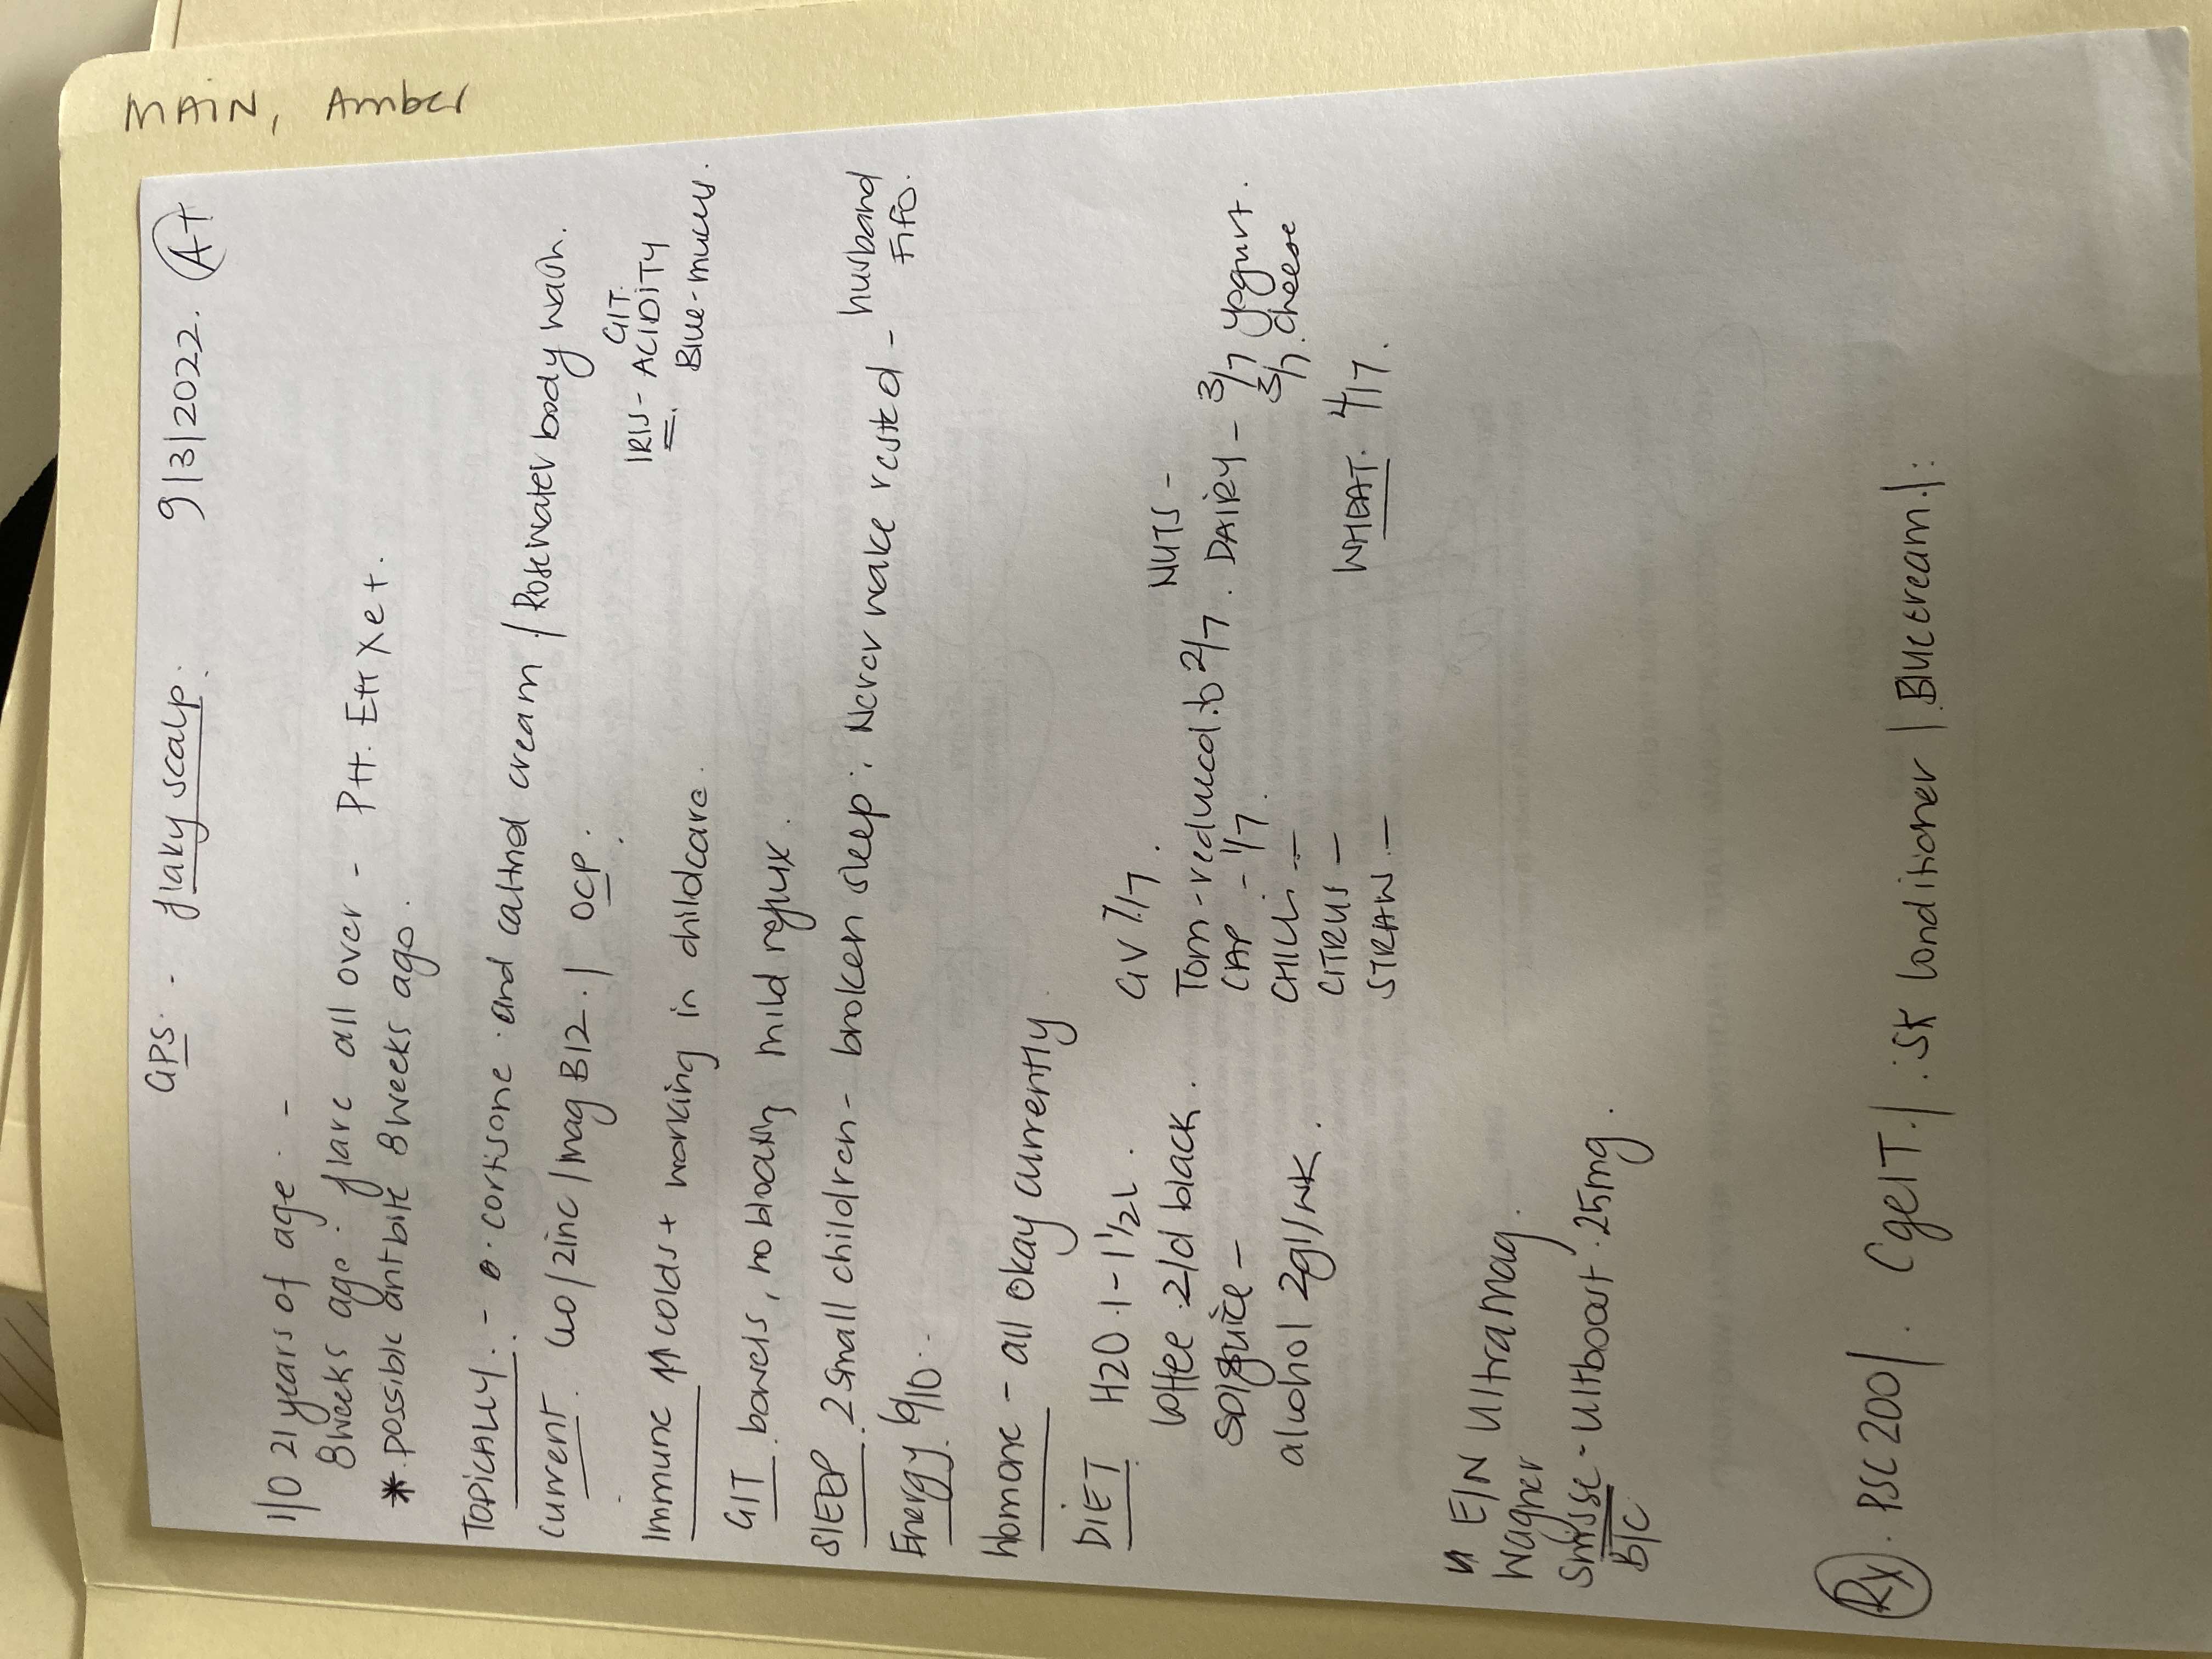 MAIN, Amber
GPS. - flaky scalp. 9/3/2022. A+
1/0 21 years of age. -
8 weeks ago. flare all over - Ptt. Ett Xet.
* possible antbite 8 weeks ago.
TOPICALLY. - cortisone. and calmed cream / Rosewater body wash.
Current. / Zinc / mag B12. / OCP.
IRIS - GIT. ACIDITY
Blue-mucus.
Immune ↑↑ colds + working in childcare.
GIT. bowels, no bloating mild reflux.
SLEEP. 2 small children - broken sleep. Never wake rested - husband
FiFo.
Energy. 6/10.
hormone - all okay currently
DIET. H2O. 1-1 1/2L. GV 7/7. NUTS -
Coffee. 2/d black. Tom - reduced. to 2/7. DAIRY - 3/7 yogurt.
3/7. cheese
CAP. - 1/7.
alcohol 2gl/wk. CHILLI -
CITRUS - WHEAT. 4/7.
STRAW. -
E/N Ultramag.
Wagner
Swisse - Ultboost. 25mg.
B/C
Rx. PSC 200/. CgelT./. SK Conditioner / Bluecream/.